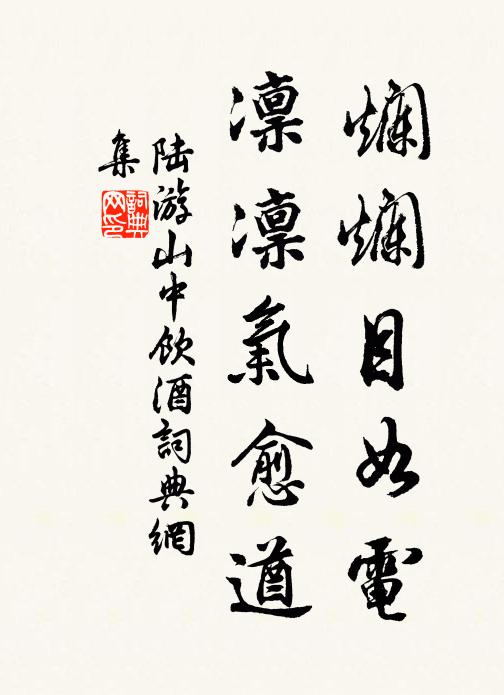 爛爛目如電
凛凛氣愈遒
陆游山中飲酒詞典網
集
詞典
网印